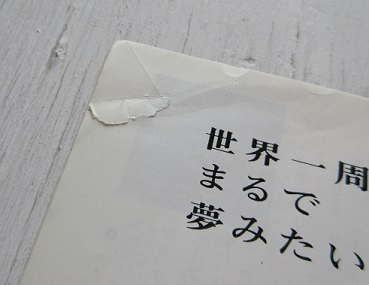 世界一周
まるで
夢みたい